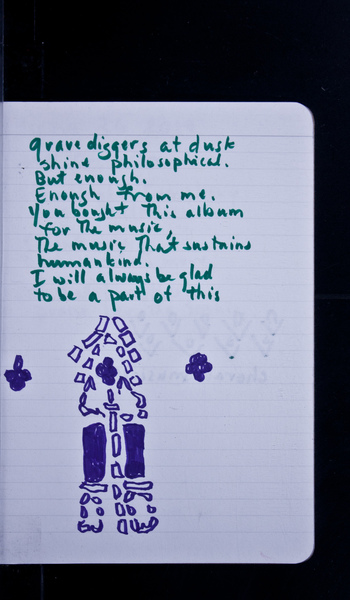 gravediggers at dusk
shine philosophical.
But enough.
Enough from me.
You bought this album
for the music,
The music that sustains
humankind.
I will always be glad
to be a part of this